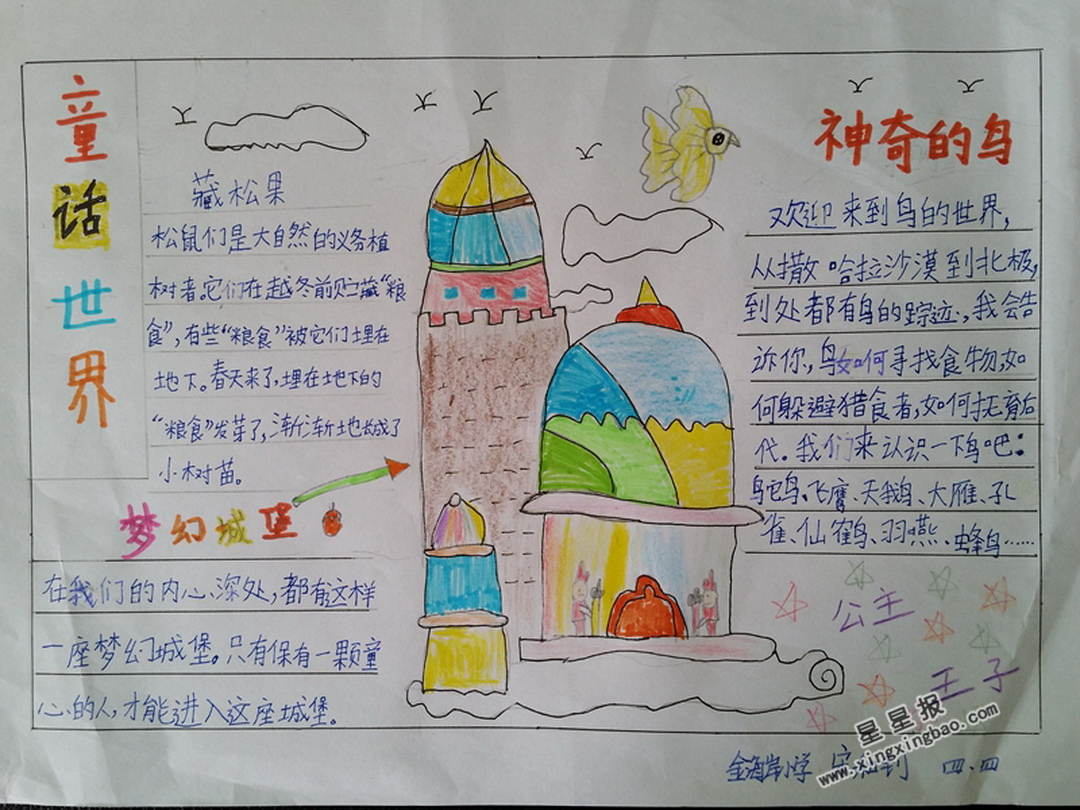 童话世界
藏松果
松鼠们是大自然的义务植
树者。它们在越冬前贮藏“粮
食”,有些“粮食”被它们埋在
地下。春天来了,埋在地下的
“粮食”发芽了,渐渐地长成了
小树苗。
梦幻城堡
在我们的内心深处,都有这样
一座梦幻城堡。只有保有一颗童
心的人,才能进入这座城堡。
神奇的鸟
欢迎来到鸟的世界,
从撒哈拉沙漠到北极,
到处都有鸟的踪迹,我会告
诉你,鸟如何寻找食物,如
何躲避猎食者,如何抚育后
代。我们来认识一下鸟吧:
鸵鸟、飞鹰、天鹅、大雁、孔
雀、仙鹤、羽燕、蜂鸟……
公主
王子
金海岸小学 四.四
星星报
www.xingxingbao.com